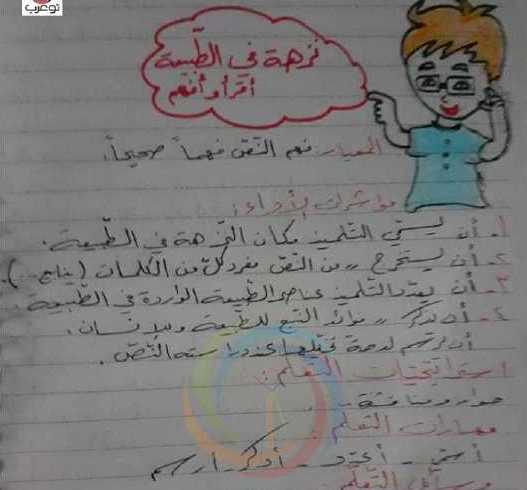 توعرب
نزهة في الطّبيعة
أقرأ وأفهم
المعيار: فهم النّصّ فهماً صحيحاً.
مؤشرات الأداء:
1- أن يسمّي التّلميذ مكان النّزهة في الطّبيعة.
2- أن يستخرج من النّصّ مفرد كلّ من الكلمات (ينابيع..).
3- أن يعدّد التّلميذ عناصر الطّبيعة الواردة في الطّبيعة.
4- أن يذكر فوائد النبع للطّبيعة وللإنسان.
أن يرسم لوحة عند دراسته النّصّ.
استراتيجيات التّعلّم:
حوار ومناقشة.
مهارات التعلم:
أسمّي - أعدّد - أذكر أرسم
وسائل التّعلّم: